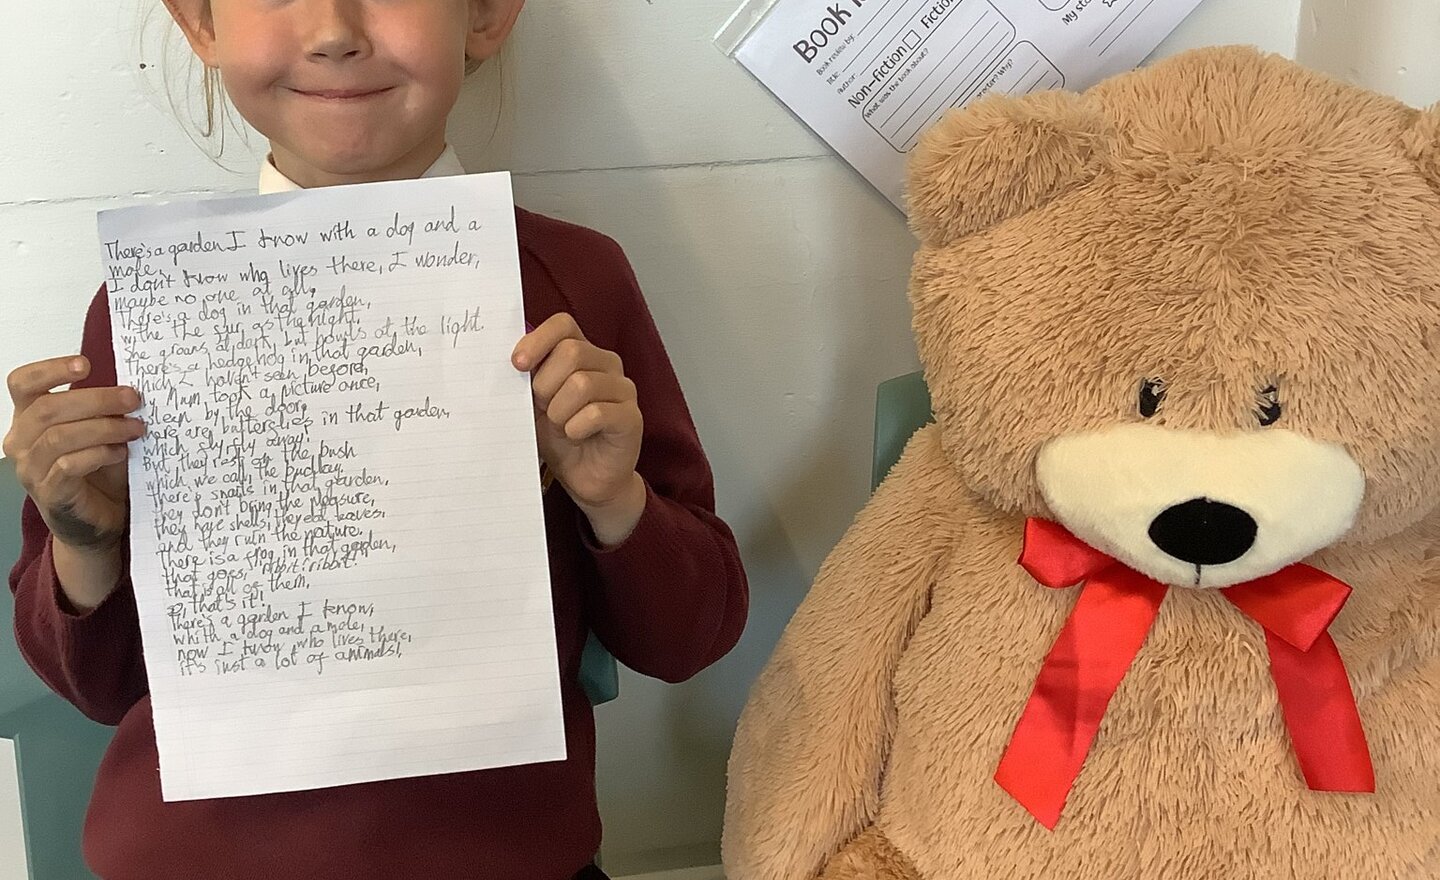 There's a garden I know with a dog and a
mole.
I don't know who lives there, I wonder,
maybe no one at all,
There's a dog in that garden,
withe the fur as the night.
She groans at dark, but howls at the light.
There's a hedgehog in that garden,
which I haven't seen before,
My Mum took a picture once,
by the door,
There are butterflies in that garden,
which fly fly away!
But they rest on the bush
which we call the budlay.
there's snails in that garden,
they don't bring the pleasure,
they have shells, they eat leaves,
and they ruin the nature.
there is a frog in that garden,
that goes, ribbit! ribbit!
that is all of them,
that's it!
There's a garden I know,
whith a dog and a mole,
now I know who lives there,
it's just a lot of animals!
BOOK
Book review by:
Title:
Author:
Non-fiction
Fiction
What was the book about?
Why?
My